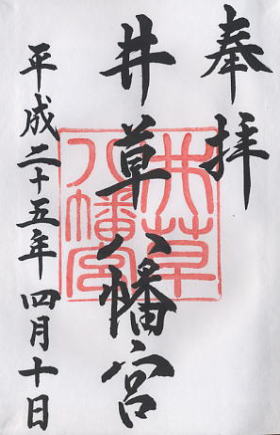 奉拝
井草八幡宮
井草八幡宮
平成二十五年四月十日